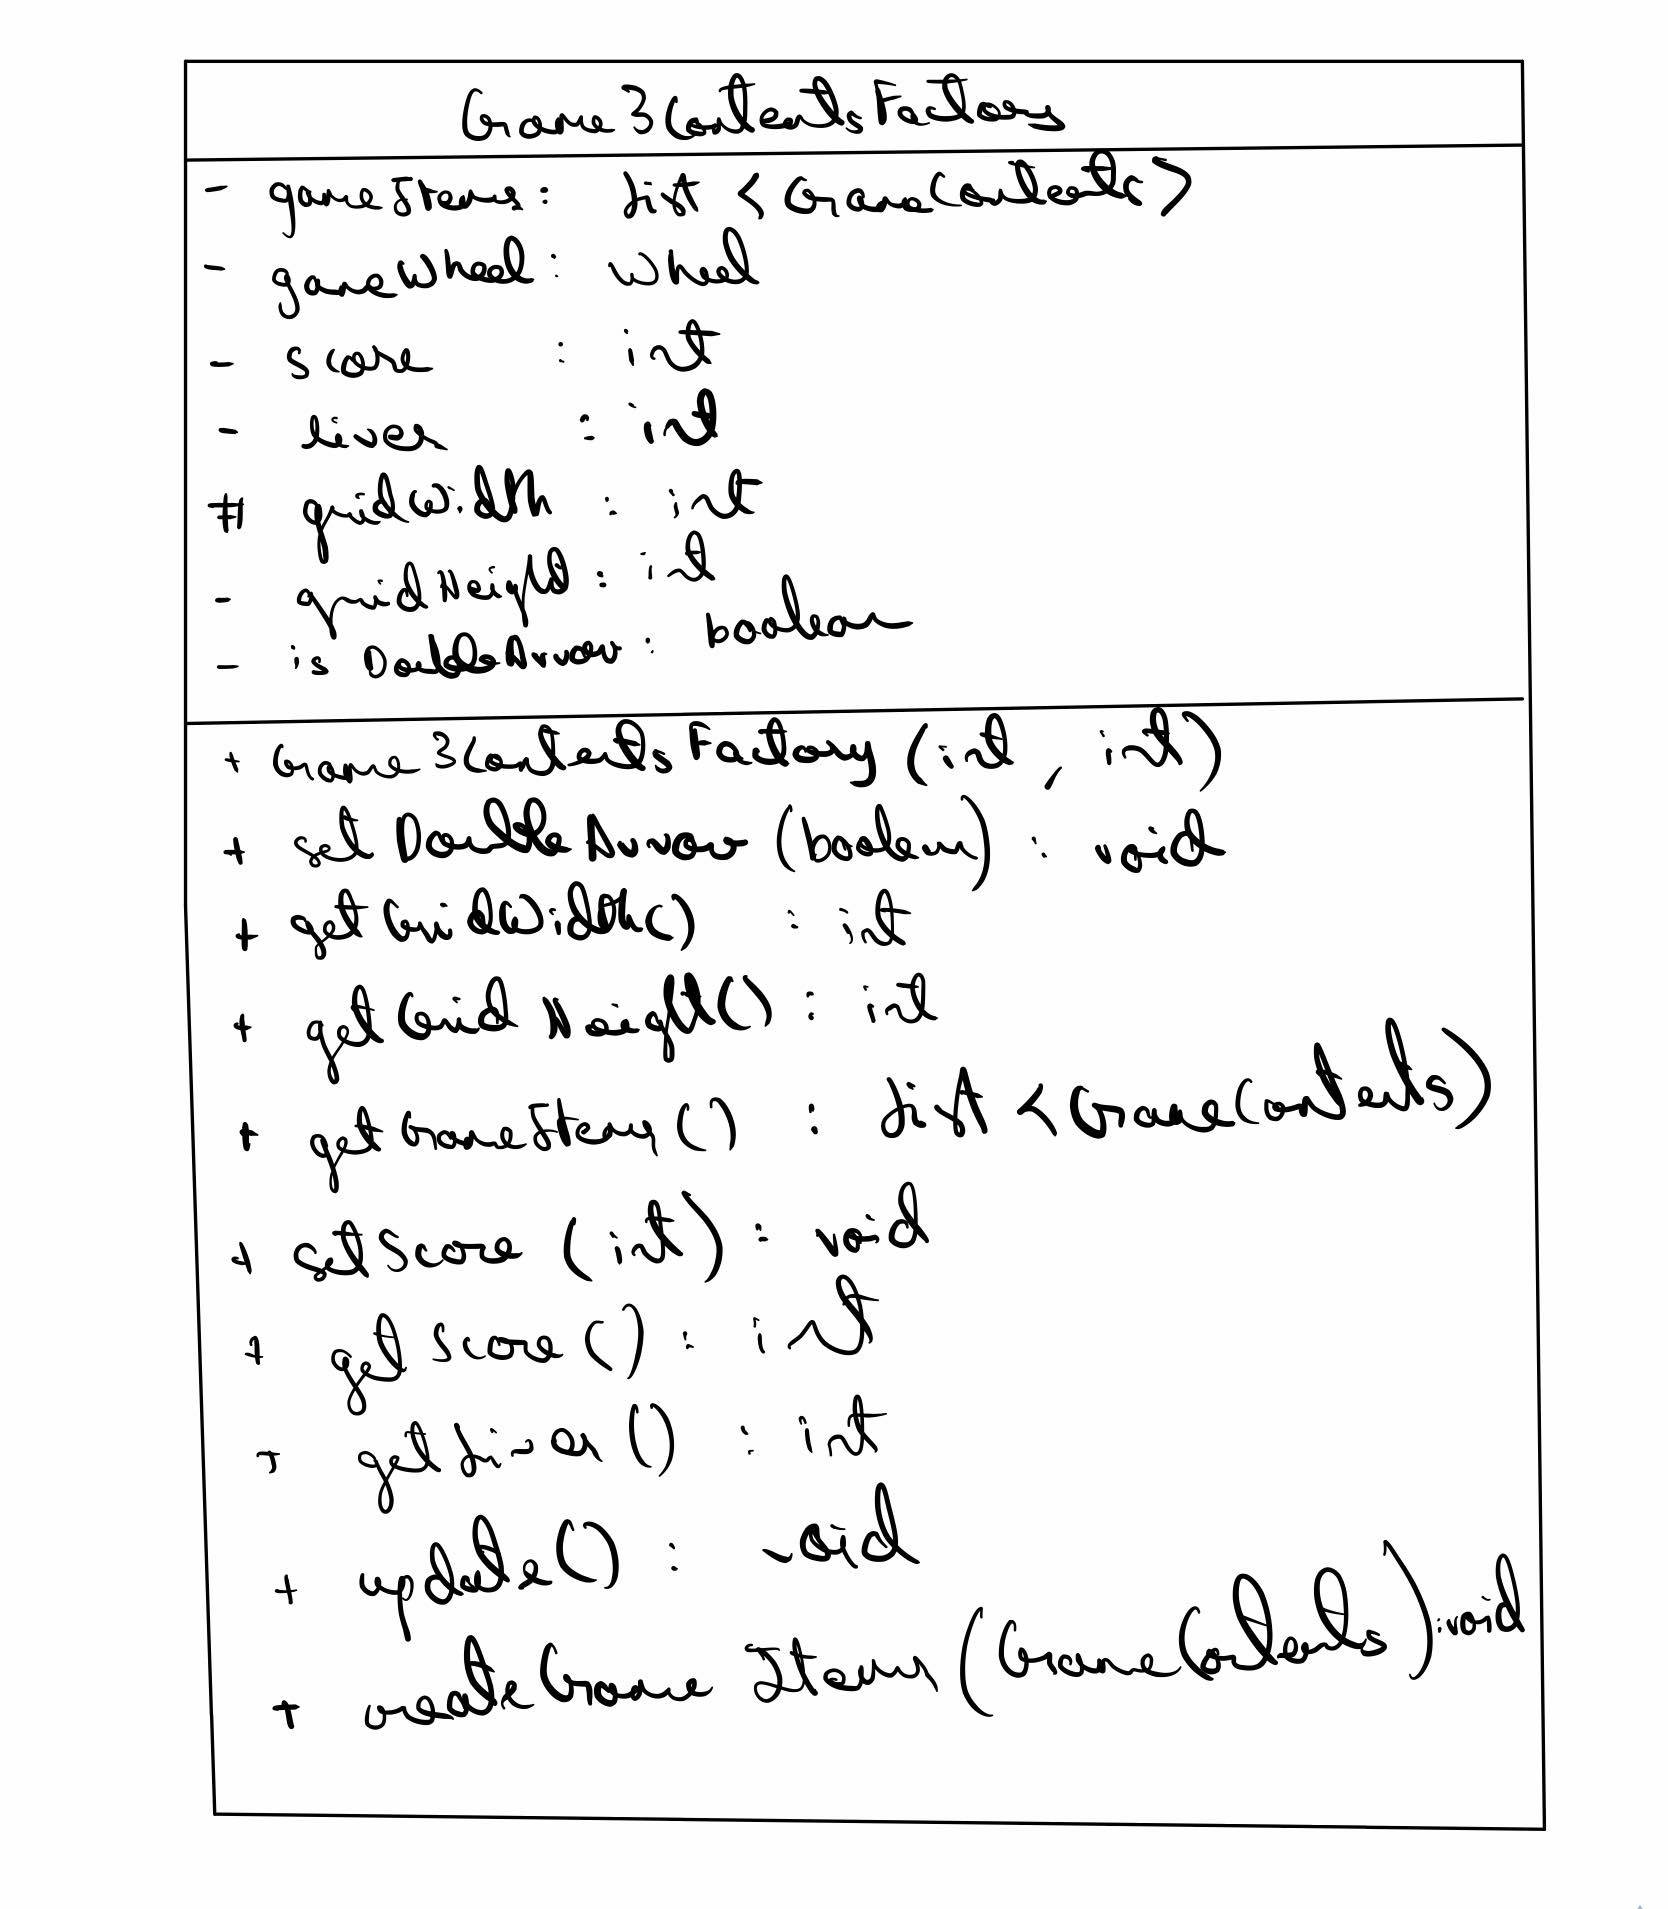 Game3ContentsFactory
- gameItems: List <GameContents>
- gameWheel: Wheel
- score : int
- lives : int
# gridWidth : int
- gridHeight: int
- isDoubleArrow: boolean
+ Game3ContentsFactory (int, int)
+ setDoubleArrow (boolean) : void
+ getGridWidth() : int
+ getGridHeight() : int
+ getGameItems() : List <GameContents)
+ setScore (int) : void
+ getScore() : int
+ getLives() : int
+ update() : void
+ createGameItems (GameContents) : void